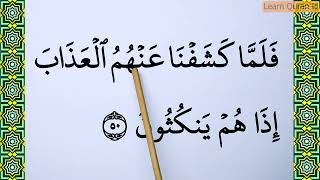 Learn Quran id
فَلَمَّا كَشَفۡنَا عَنۡهُمُ ٱلۡعَذَابَ
إِذَا هُمۡ يَنكُثُونَ ٥٠